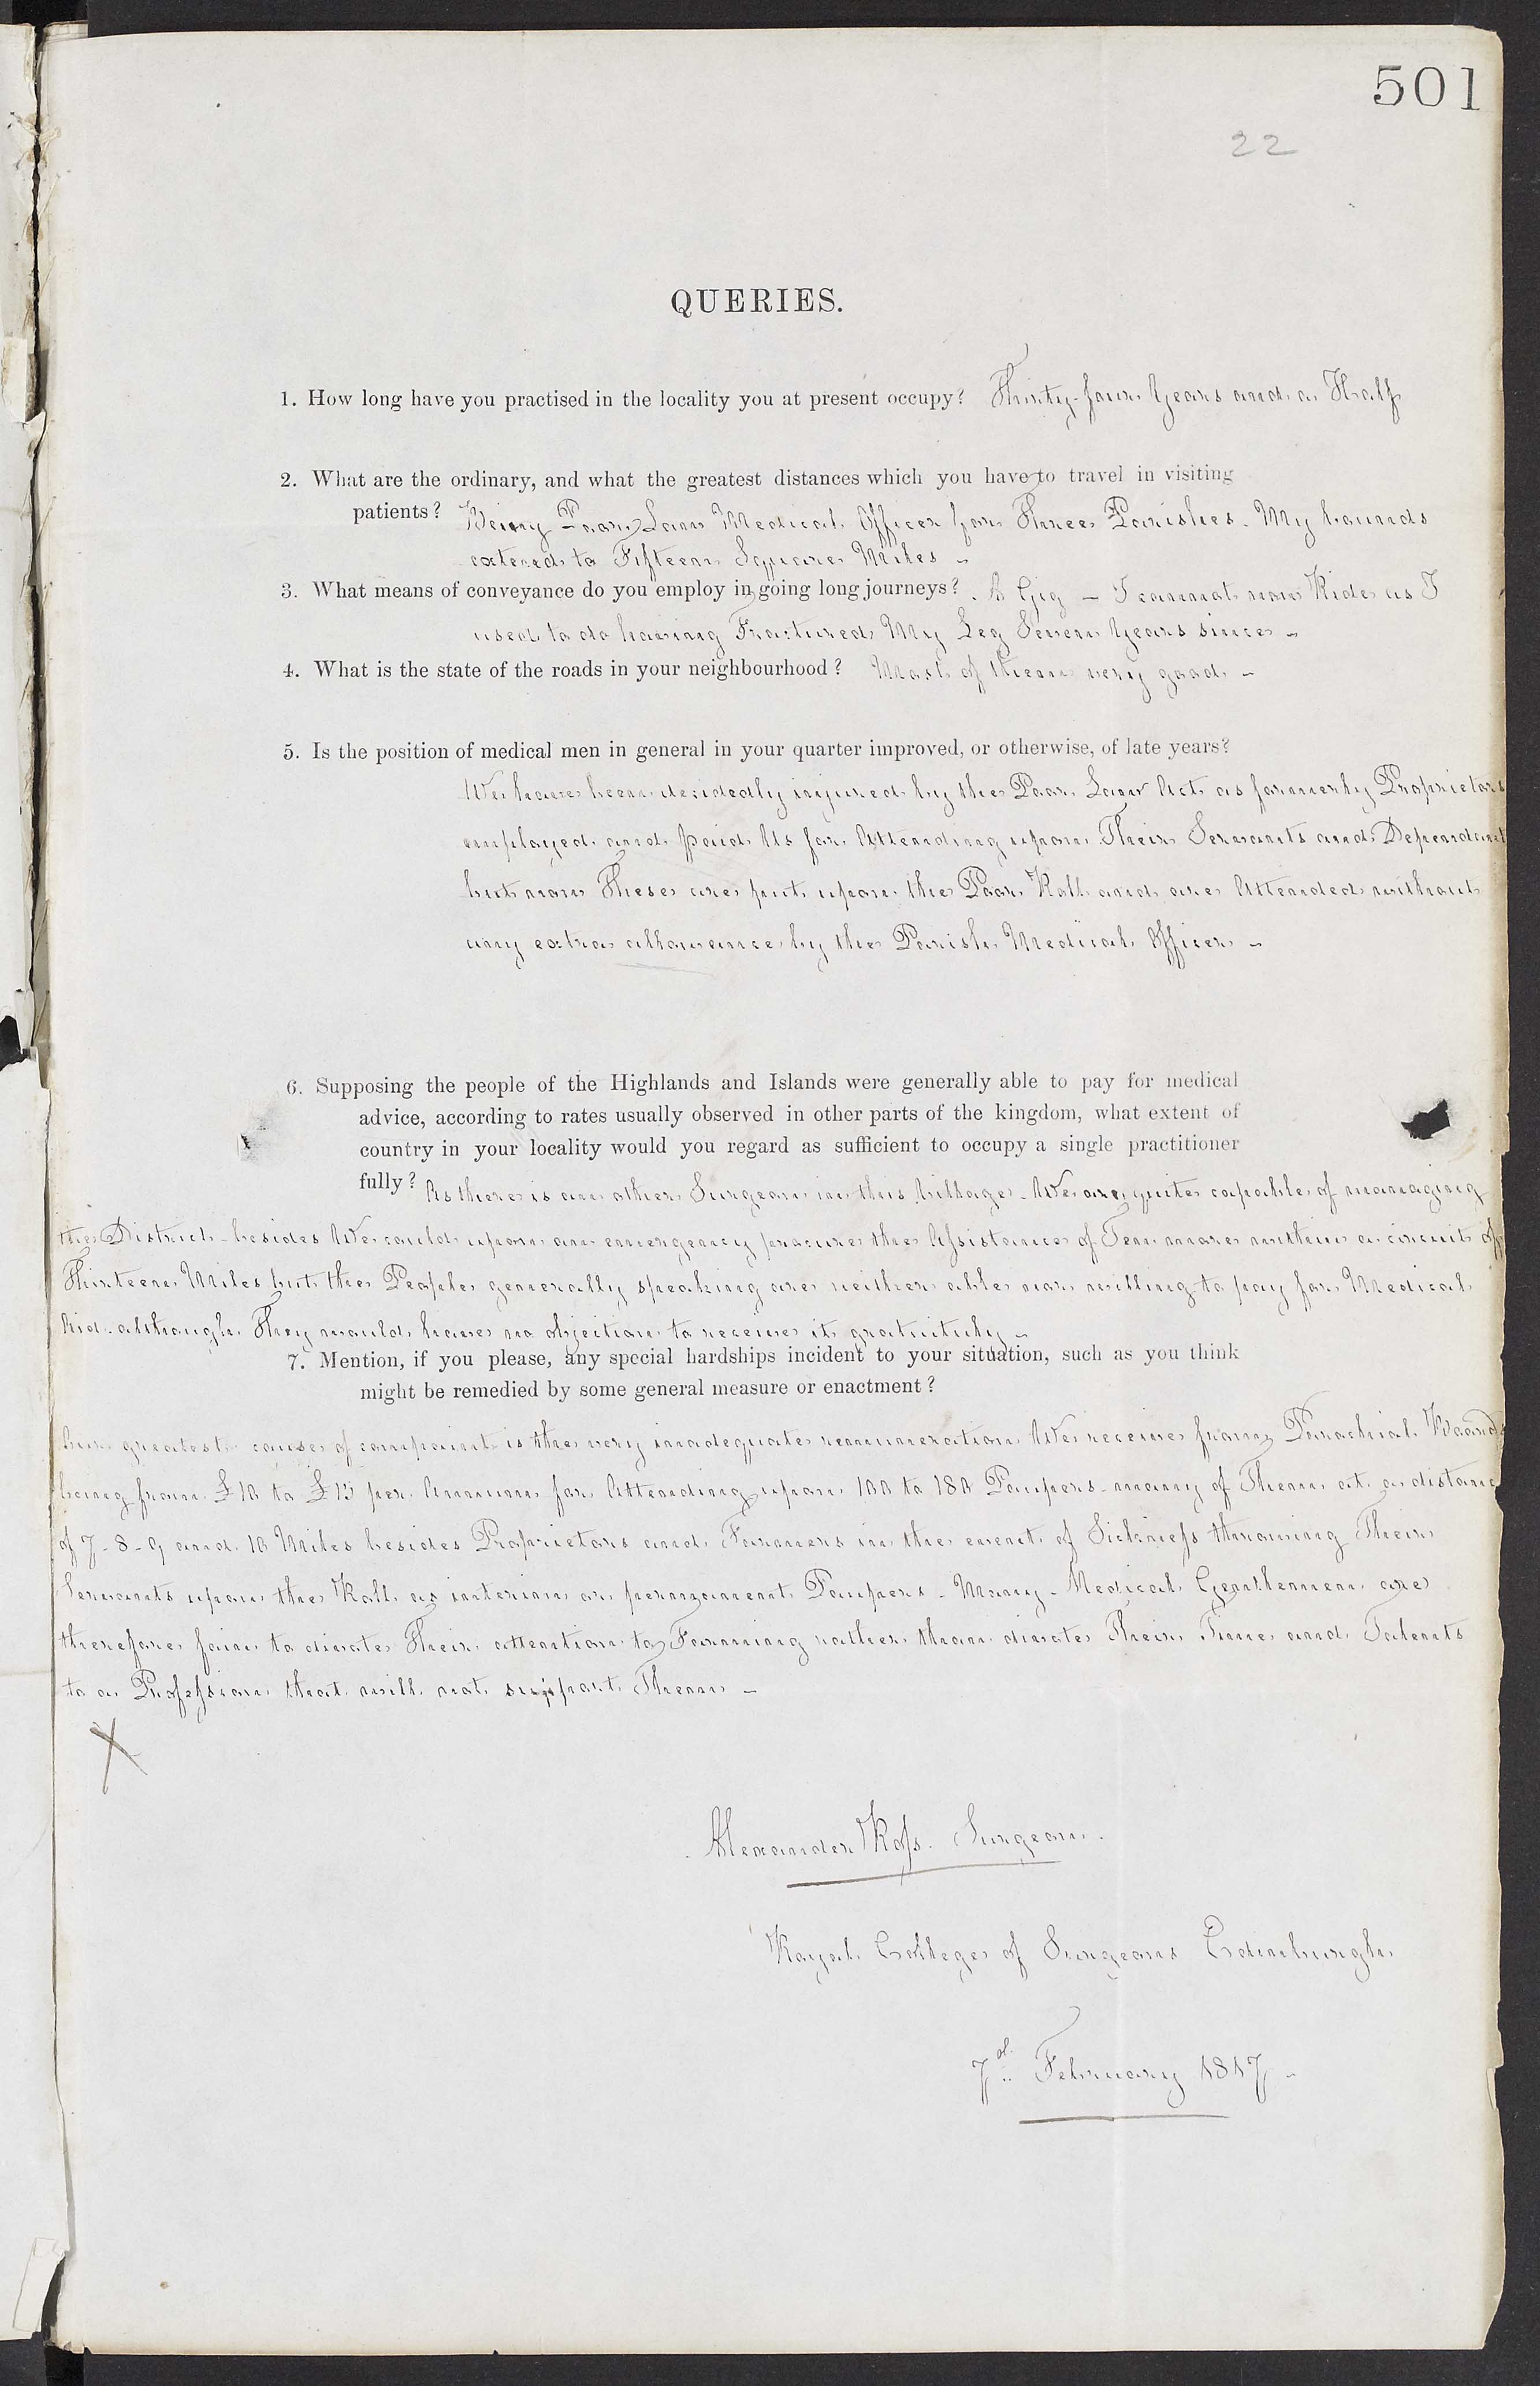 501
22
QUERIES.
1. How long have you practised in the locality you at present occupy? Thirty-four Years and a Half
2. What are the ordinary, and what the greatest distances which you have to travel in visiting
patients? Being Poor Law Medical Officer for Three Parishes. My bounds
extend to Fifteen Square Miles -
3. What means of conveyance do you employ in going long journeys? A Gig - I cannot now Ride as I
used to do having Fractured My Leg Seven Years since -
4. What is the state of the roads in your neighbourhood? Most of them very good. -
5. Is the position of medical men in general in your quarter improved, or otherwise, of late years?
We have been decidedly injured by the Poor Law Act as formerly Proprietors
employed and paid Us for Attending upon Their Servants and Dependant
but now These are put upon the Poor Roll and are Attended without
any extra allowance by the Parish Medical Officer -
6. Supposing the people of the Highlands and Islands were generally able to pay for medical
advice, according to rates usually observed in other parts of the kingdom, what extent of
country in your locality would you regard as sufficient to occupy a single practitioner
fully? As there is an other Surgeon in this Village - We are quite capable of managing
the District - besides We could upon an emergency procure the Assistance of Ten more within a circuit of
Thirteen Miles but the People generally speaking are neither able nor willing to pay for Medical
Aid - although They would have no objection to receive it gratuituly -
7. Mention, if you please, any special hardships incident to your situation, such as you think
might be remedied by some general measure or enactment?
Our greatest cause of compaint is the very inadequate remuneration We receive from Parochial Boards
being from £10 to £15 per Annum for Attending upon 100 to 180 Paupers - many of Them at a distanc
of 7 - 8 - 9 and 10 Miles besides Proprietors and Farmers in the event of Sickness throwing Their
Servants upon the Roll as interim or permanent Paupers - Many - Medical Gentlemen are
therefore fain to divote Their attention to Farming rather than divote Their Time and Talents
to a Profession that will not support Them -
X
Alexander Ross. Surgeon.
Royal College of Surgeons Edinburgh
7th February 1817 -